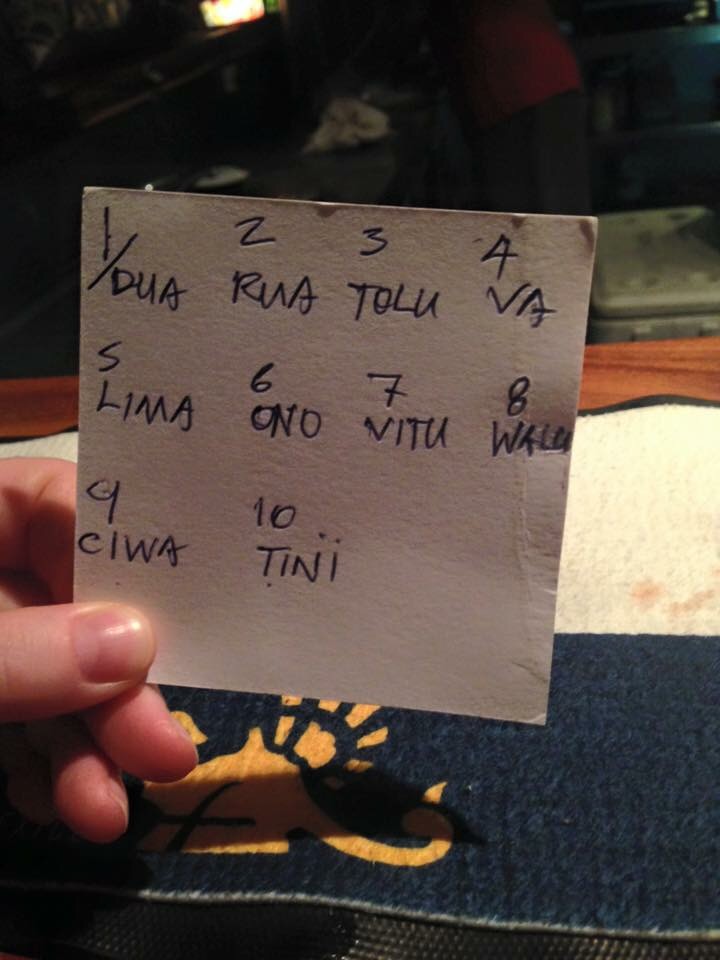 1 2 3 4
/DUA RUA TOLU VA
5 6 7 8
LIMA ONO VITU WALU
9 10
CIWA TINI